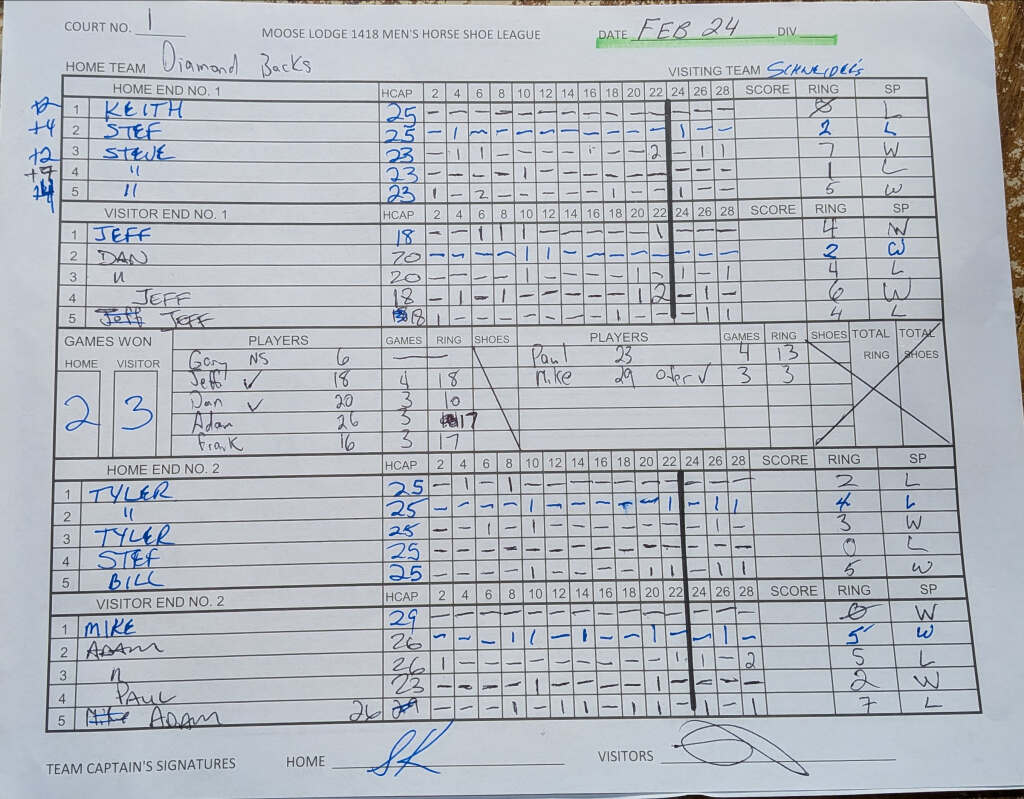 COURT NO. 1 MOOSE LODGE 1418 MEN'S HORSE SHOE LEAGUE DATE FEB 24 DIV.
HOME TEAM Diamond Backs VISITING TEAM SCHNEIDER'S
HOME END NO. 1 HCAP 2 4 6 8 10 12 14 16 18 20 22 24 26 28 SCORE RING SP
1 KEITH 25 - - - - - - - - - - - - - - 0 L
+4 2 STEF 25 - 1 - - - - - - - - - 1 - - 2 L
+2 3 STEVE 23 - 1 1 - - - - 1 - - 2 - 1 1 7 W
+7 4 " 23 - - - - 1 - - - - - - - - - 1 L
+4 5 " 23 1 - 2 - - - - - 1 - - 1 - - 5 W
VISITOR END NO. 1 HCAP 2 4 6 8 10 12 14 16 18 20 22 24 26 28 SCORE RING SP
1 JEFF 18 - - 1 1 1 - - - - - 1 - - - 4 W
2 DAN 20 - - - - 1 1 - - - - - - - - 2 W
3 " 20 - - - - 1 - - - - 1 - 1 - 1 4 L
4 JEFF 18 - 1 - 1 - - - - - 1 2 - 1 - 6 W
5 Jeff JEFF 18 1 - - - - - - - 1 - - - 1 1 4 L
GAMES WON PLAYERS GAMES RING SHOES PLAYERS GAMES RING SHOES TOTAL RING TOTAL SHOES
HOME VISITOR
2 3
Gary NS 6 —
Jeff ✓ 18 4 18
Dan ✓ 20 3 10
Adam 26 3 17
Frank 16 3 17
Paul 23 4 13
Mike 29 ofer ✓ 3 3
HOME END NO. 2 HCAP 2 4 6 8 10 12 14 16 18 20 22 24 26 28 SCORE RING SP
1 TYLER 25 - 1 - 1 - - - - - - - - - - 2 L
2 " 25 - - - - 1 - - - - - 1 - 1 1 4 L
3 TYLER 25 - - 1 - 1 - - - - - - - 1 - 3 W
4 STEF 25 - - - - - - - - - - - - - - 0 L
5 BILL 25 - - - - 1 - - - - 1 1 - 1 1 5 W
VISITOR END NO. 2 HCAP 2 4 6 8 10 12 14 16 18 20 22 24 26 28 SCORE RING SP
1 MIKE 29 - - - - - - - - - - - - - - 0 W
2 ADAM 26 - - - 1 1 - 1 - - 1 - - 1 - 5 W
3 " 26 1 - - - - - - - - - 1 1 - 2 5 L
4 PAUL 23 - - - - 1 - - - - 1 - - - - 2 W
5 Mike ADAM 26 29 - - - 1 - 1 1 - 1 1 - 1 - 1 7 L
TEAM CAPTAIN'S SIGNATURES HOME SK VISITORS